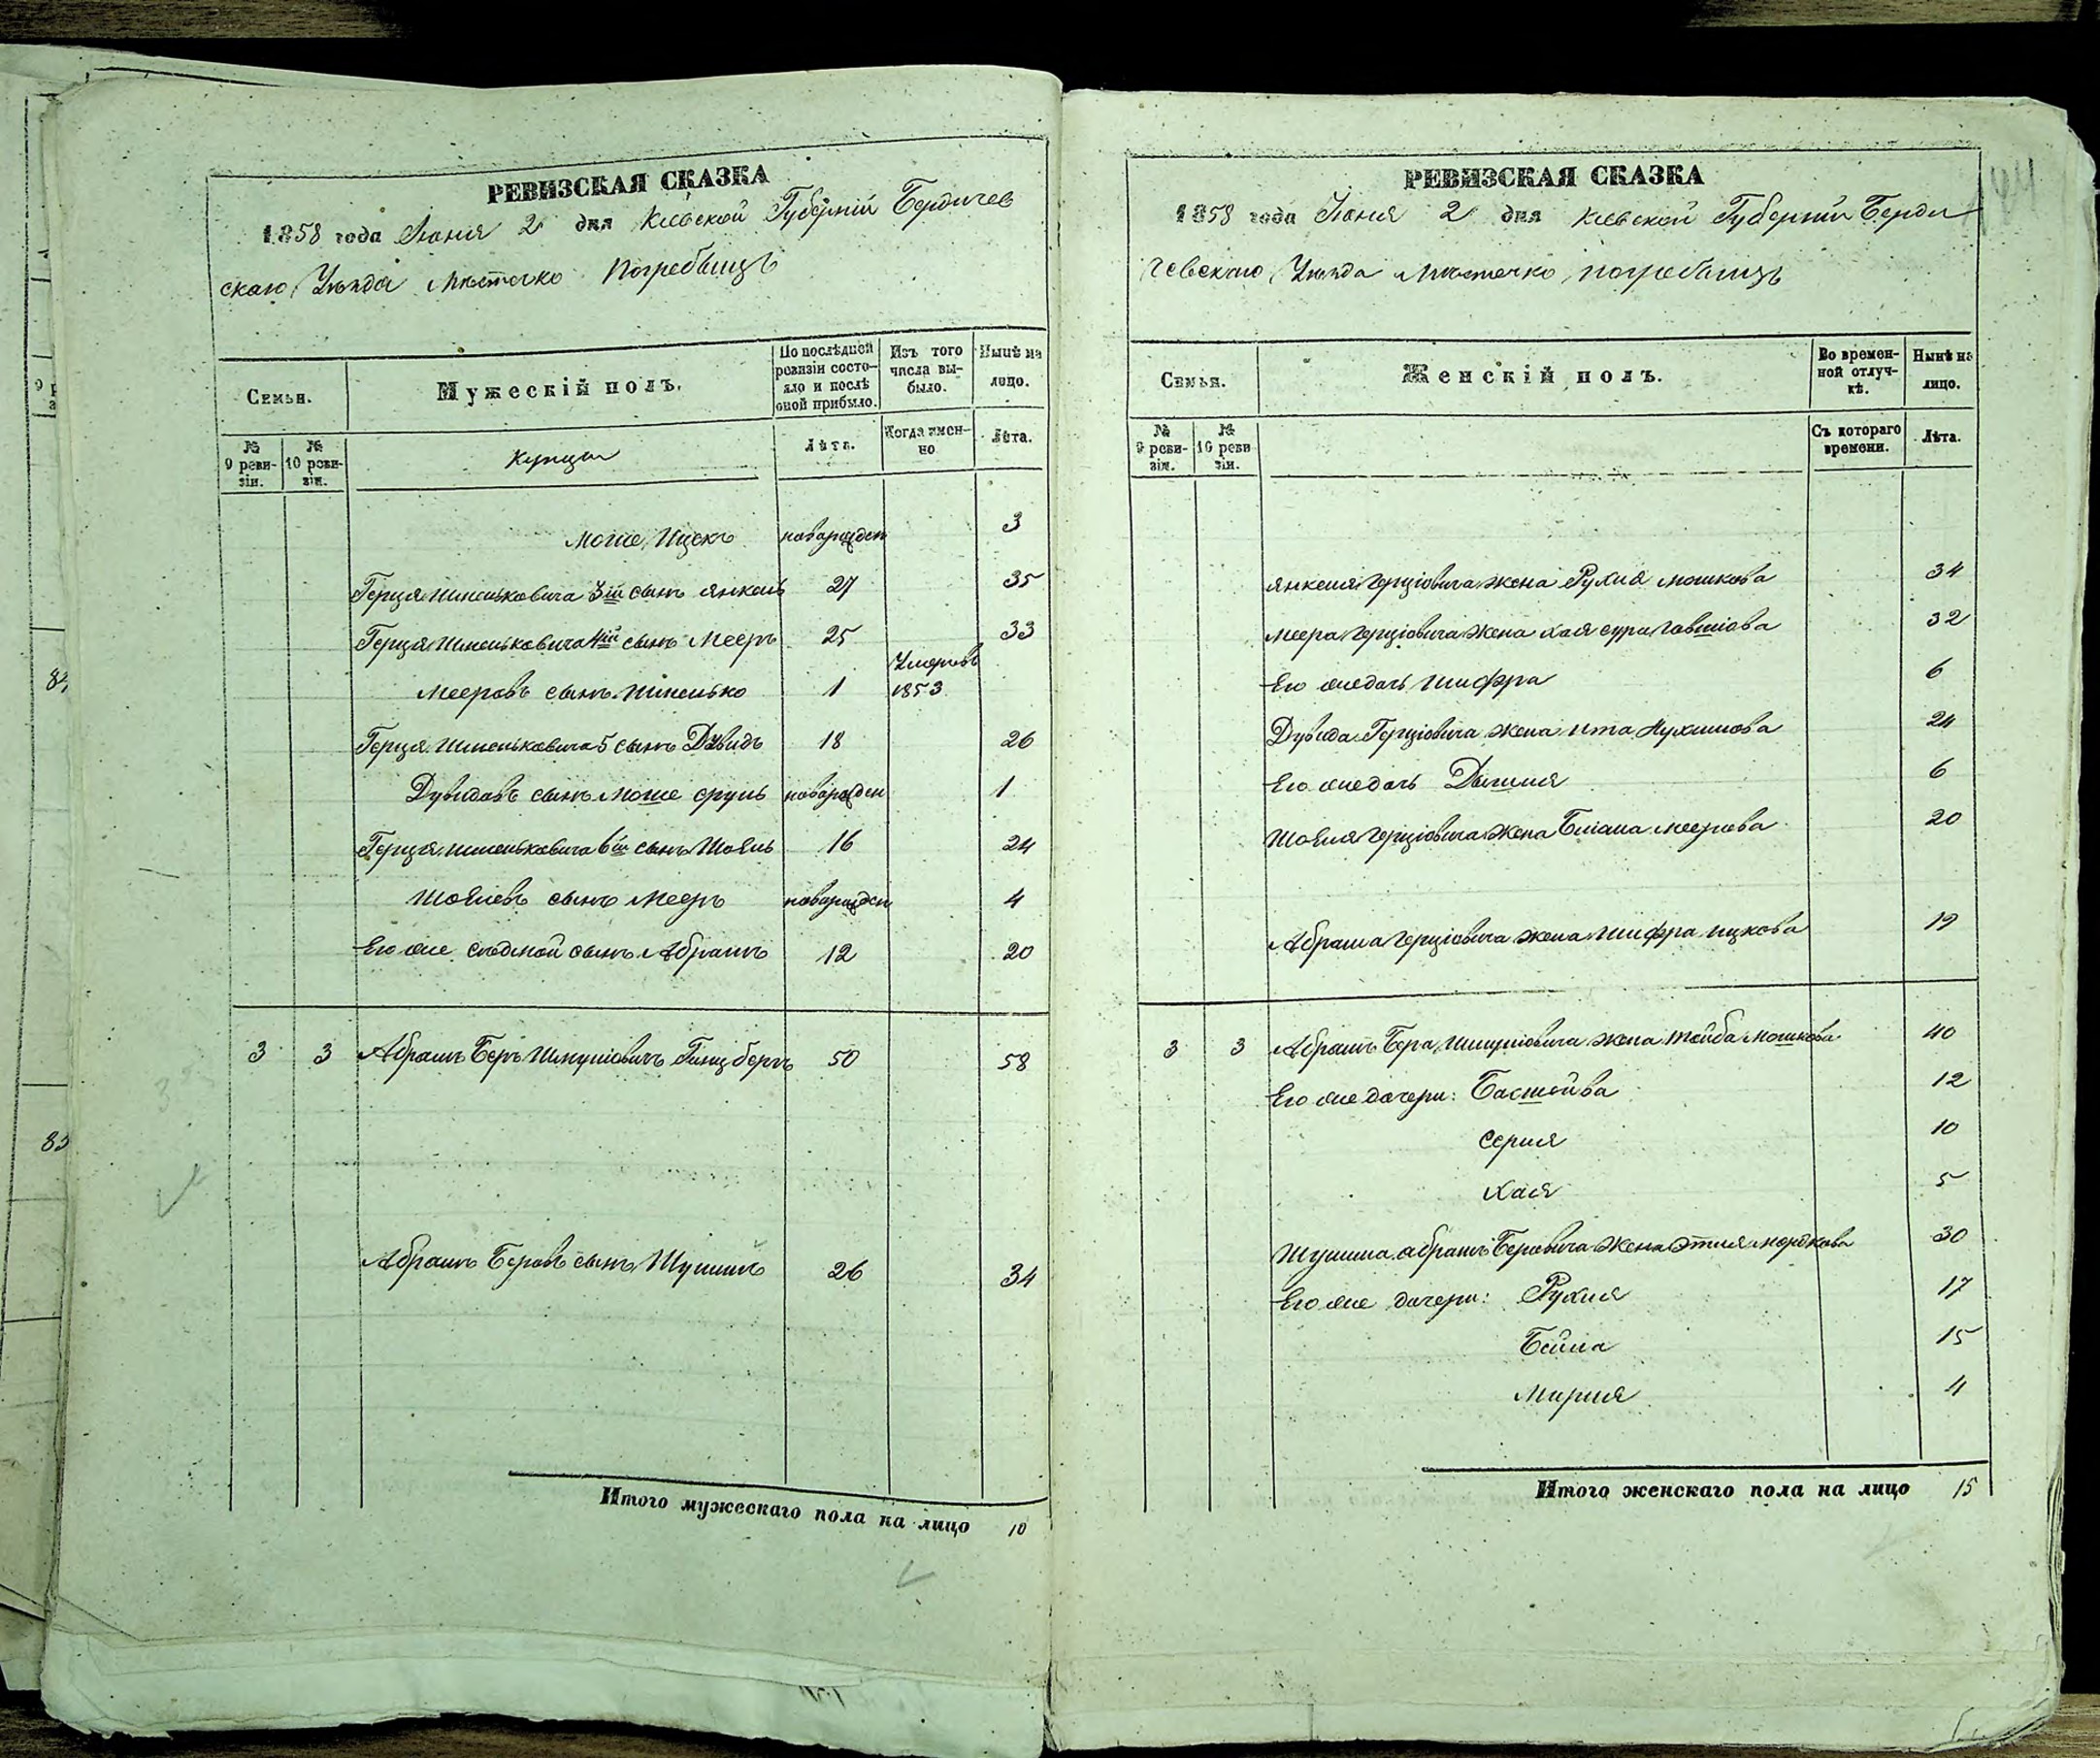 РЕВИЗСКАЯ СКАЗКА
1858 года Іюня 2 дня Кіевской Губерніи Бердичев
скаго Уѣзда Мѣстечко Погребыщъ
Семьи.
Мужескій полъ.
По послѣдней ревизіи состо-
яло и послѣ
оной прибыло.
Изъ того
числа вы-
было.
Нынѣ на
лицо.
№
9 реви-
зіи.
№
10 реви-
зіи.
Купцы
Лѣта.
Когда имен-
но
Лѣта.
Моше Ицекъ новорожден 3
Герця Шлеьковича 3й сынъ Янкель 27 35
Герця 4й сынъ Мееръ 25 33
Умеръ въ
Мееровъ сынъ 1 1853
Герця 5 сынъ Дувидъ 18 26
Дувидовъ сынъ Моше Сруль новорожден 1
Герця 6й сынъ Шоель 16 24
Шоелевъ сынъ Мееръ новорожден 4
Его же седмой сынъ Абрамъ 12 20
3 3 Абрамъ Беръ Шмуліовичъ Гинзбергъ 50 58
Абрамъ Беровъ сынъ Шулимъ 26 34
Итого мужескаго пола на лицо 10
РЕВИЗСКАЯ СКАЗКА
1858 года Іюня 2 дня Кіевской Губерніи Берди
чевскаго Уѣзда Мѣстечко Погребыщъ
Семья.
Женскій полъ.
Во времен-
ной отлуч-
кѣ.
Нынѣ на
лицо.
№
9 реви-
зіи.
№
10 реви
зіи.
Съ котораго
времени.
Лѣта.
Янкеля Герціовича жена Рухля Мошкова 34
Меера Герціовича жена Хая Сура 32
Его же дочь Шифра 6
Дувида Герціовича жена Ита Нухимова 24
Его же дочь 6
Шоеля Герціовича жена Блима Меерова 20
Абрама Герціовича жена Шифра Ицкова 19
3 3 Абрамъ Бера Шмуліовича жена Тайба Мошкова 40
Его же дочери: Бастейва 12
Серля 10
Хая 5
Шулима Абрамъ Беровича жена Этля Мордкова 30
Его же дочери: Рухля 17
Бейла 15
Мирля 4
Итого женскаго пола на лицо 15